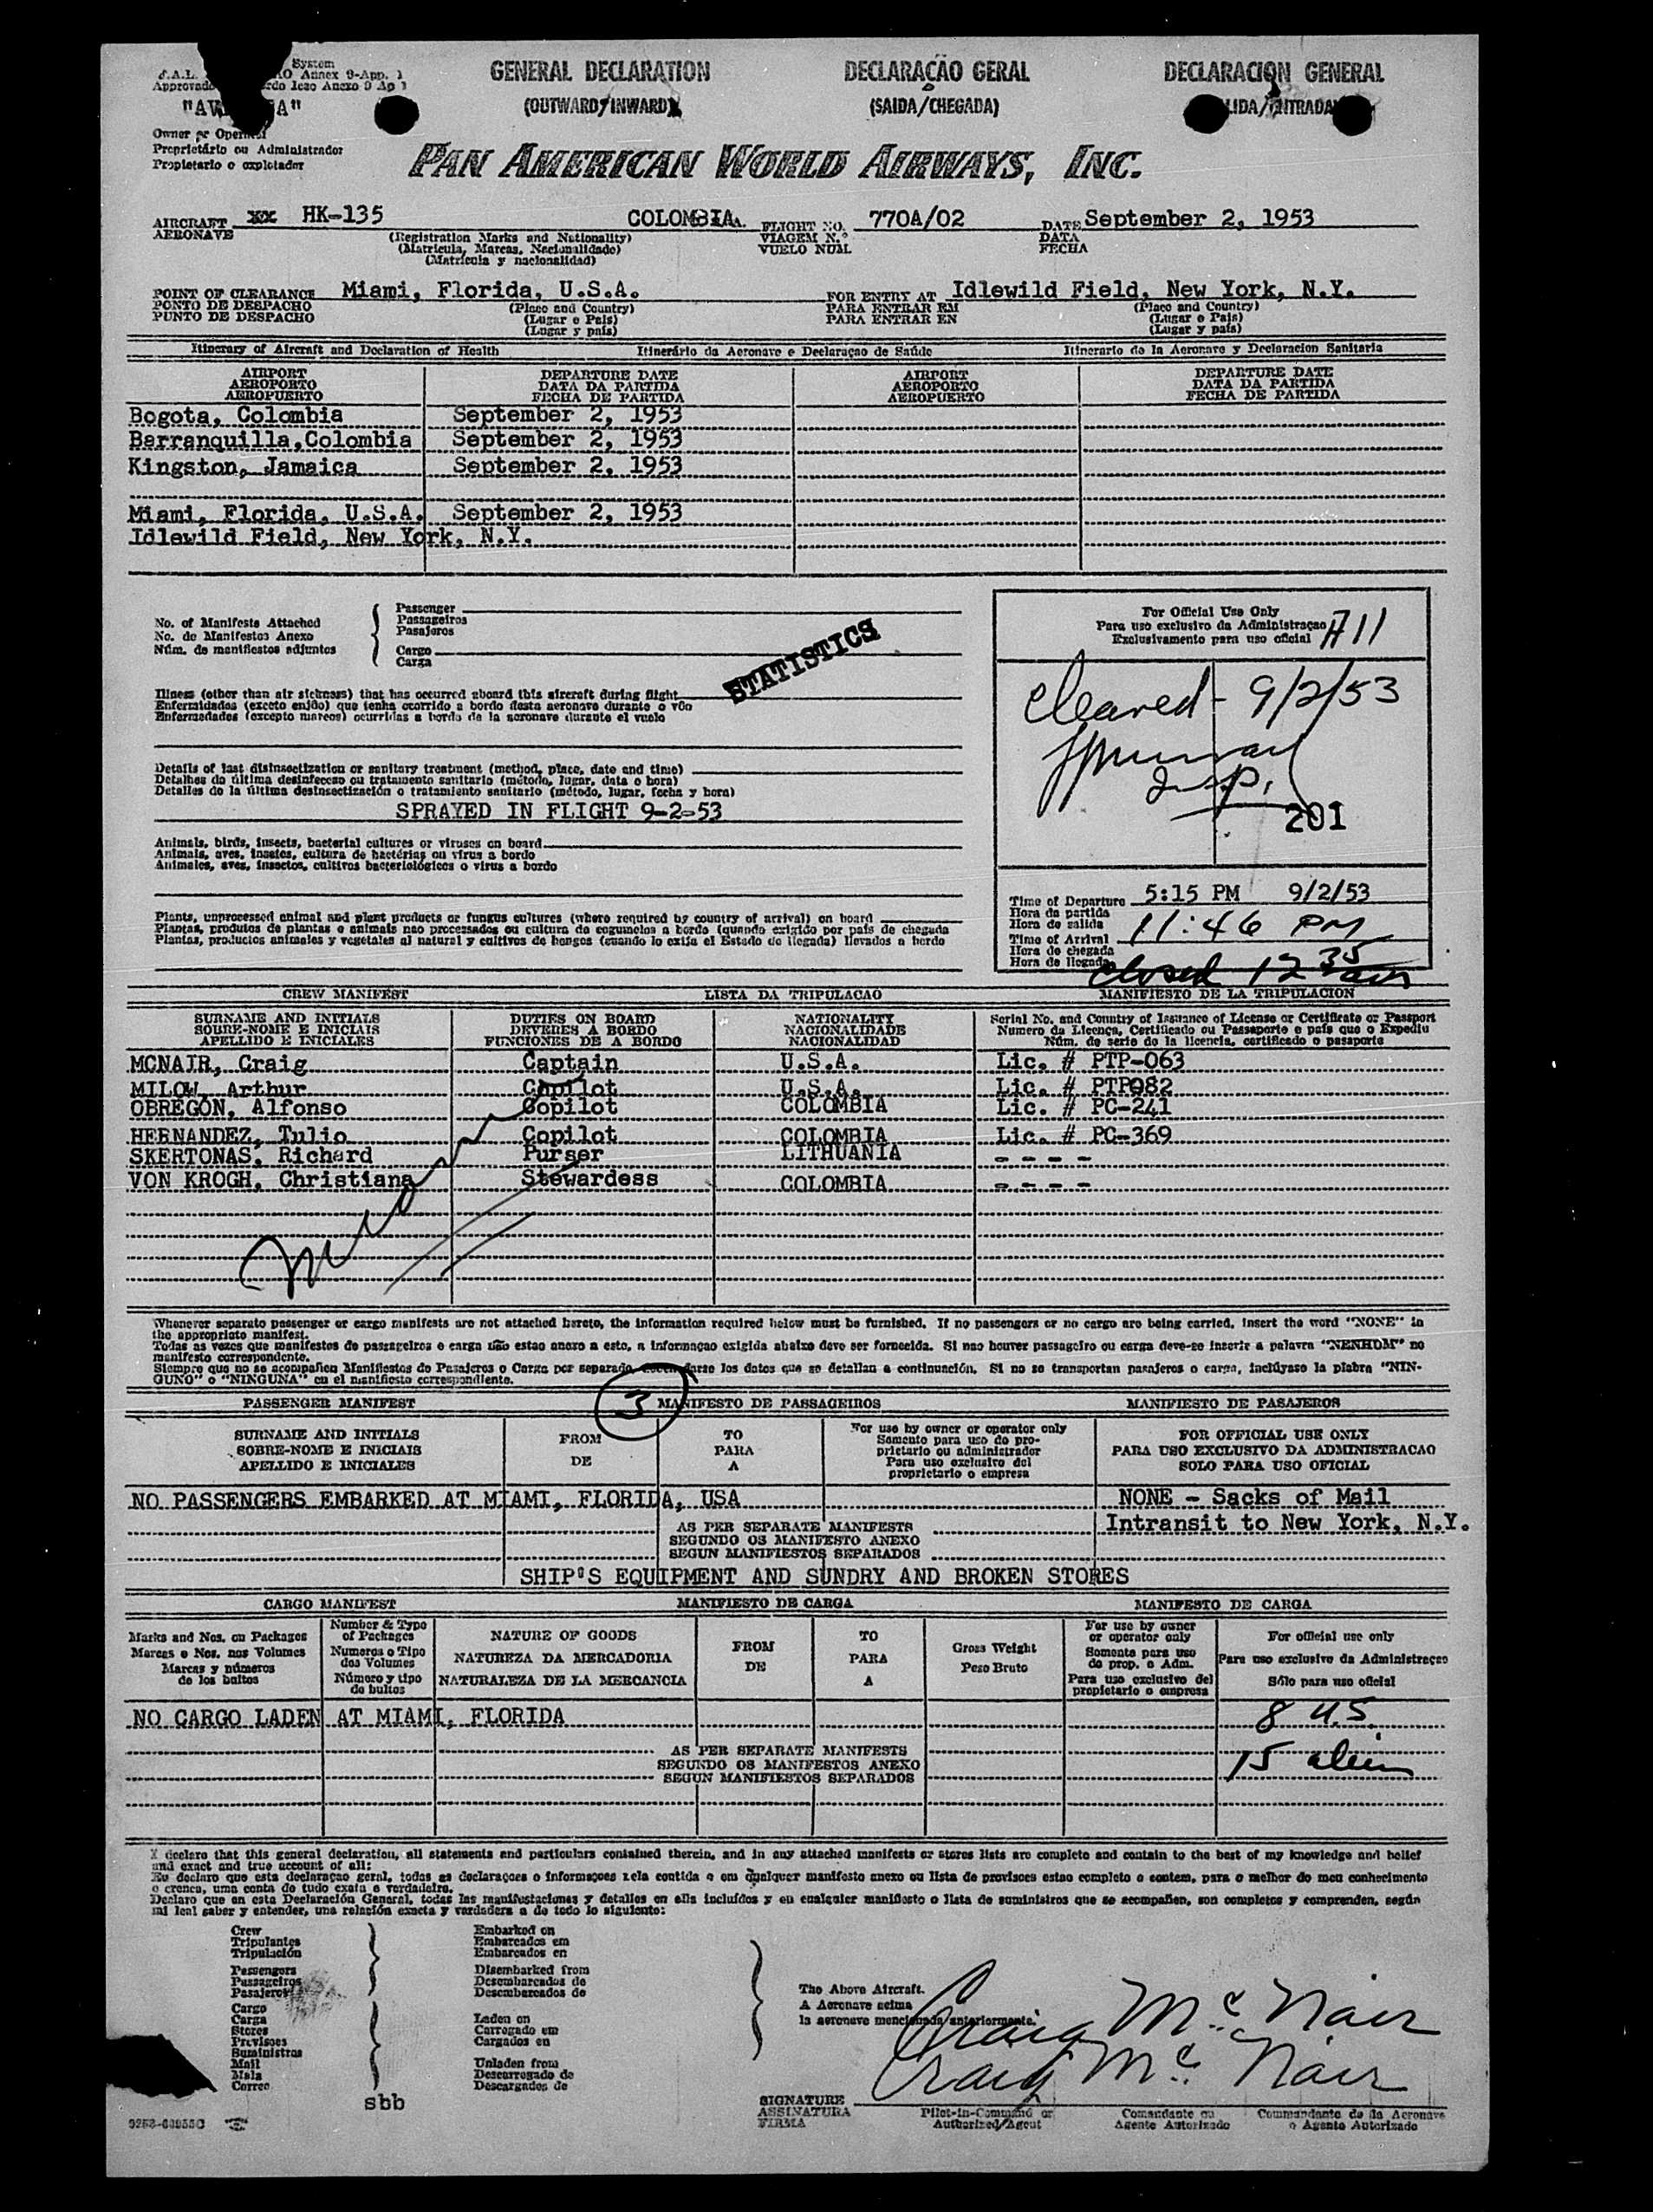 System
Annex 9-App. 1
Approvado
GENERAL DECLARATION
(OUTWARD/INWARD)
DECLARAÇÃO GERAL
(SAIDA/CHEGADA)
DECLARACION GENERAL
Owner or Operator
Proprietário ou Administrador
Propietario o explotador
PAN AMERICAN WORLD AIRWAYS, INC.
AIRCRAFT xx HK-135 COLOMBIA FLIGHT NO. 770A/02 DATE September 2, 1953
AERONAVE (Registration Marks and Nationality) VIAGEM N.º DATA
(Matricula, Marcas, Nacionalidade) VUELO NUM. FECHA
(Matrícula y nacionalidad)
POINT OF CLEARANCE Miami, Florida, U.S.A. FOR ENTRY AT Idlewild Field, New York, N.Y.
PONTO DE DESPACHO (Place and Country) PARA ENTRAR EM (Place and Country)
PUNTO DE DESPACHO (Lugar e Pais) PARA ENTRAR EN (Lugar e Pais)
(Lugar y país) (Lugar y país)
Itinerary of Aircraft and Declaration of Health Itinerário da Aeronave e Declaraçao de Saúde Itinerario de la Aeronave y Declaracion Sanitaria
AIRPORT DEPARTURE DATE AIRPORT DEPARTURE DATE
AEROPORTO DATA DA PARTIDA AEROPORTO DATA DA PARTIDA
AEROPUERTO FECHA DE PARTIDA AEROPUERTO FECHA DE PARTIDA
Bogota, Colombia September 2, 1953
Barranquilla,Colombia September 2, 1953
Kingston, Jamaica September 2, 1953
Miami, Florida, U.S.A. September 2, 1953
Idlewild Field, New York, N.Y.
No. of Manifests Attached
No. de Manifestos Anexo
Núm. de manifiestos adjuntos
Passenger
Passageiros
Pasajeros
Cargo
Carga
STATISTICS
For Official Use Only
Para uso exclusivo da Administraçao
Exclusivamente para uso oficial
A11
Cleared - 9/2/53
Insp.
201
Illness (other than air sickness) that has occurred aboard this aircraft during flight
Enfermidades (exceto enjôo) que tenha ocorrido a bordo desta aeronave durante o vôo
Enfermedades (excepto mareos) ocurridas a bordo de la aeronave durante el vuelo
Details of last disinsectization or sanitary treatment (method, place, date and time)
Detalhes da última desinfeccao ou tratamento sanitario (método, lugar, data e hora)
Detalles de la última desinsectización o tratamiento sanitario (método, lugar, fecha y hora)
SPRAYED IN FLIGHT 9-2-53
Animals, birds, insects, bacterial cultures or viruses on board
Animais, aves, insetos, cultura de bactérias ou virus a bordo
Animales, aves, insectos, cultivos bacteriológicos o virus a bordo
Plants, unprocessed animal and plant products or fungus cultures (where required by country of arrival) on board
Plantas, produtos de plantas e animais nao processados ou cultura de cogumelos a bordo (quando exigido por país de chegada
Plantas, productos animales y vegetales al natural y cultivos de hongos (cuando lo exija el Estado de llegada) llevados a bordo
Time of Departure 5:15 PM 9/2/53
Hora da partida
Hora de salida
Time of Arrival 11:46 PM
Hora de chegada
Hora de llegada
Closed 12 35 am
CREW MANIFEST LISTA DA TRIPULACAO MANIFIESTO DE LA TRIPULACION
SURNAME AND INITIALS DUTIES ON BOARD NATIONALITY Serial No. and Country of Issuance of License or Certificate or Passport
SOBRE-NOME E INICIAIS DEVERES A BORDO NACIONALIDADE Numero da Licença, Certificado ou Passaporte e pais que o Expediu
APELLIDO E INICIALES FUNCIONES DE A BORDO NACIONALIDAD Núm. de serie de la licencia, certificado o pasaporte
MCNAIR, Craig Captain U.S.A. Lic. # PTP-063
MILOW, Arthur Copilot U.S.A. Lic. # PTP082
OBREGON, Alfonso Copilot COLOMBIA Lic. # PC-241
HERNANDEZ, Tulio Copilot COLOMBIA Lic. # PC-369
SKERTONAS, Richard Purser LITHUANIA - - - -
VON KROGH, Christiana Stewardess COLOMBIA - - - -
Whenever separate passenger or cargo manifests are not attached hereto, the information required below must be furnished. If no passengers or no cargo are being carried, insert the word "NONE" in
the appropriate manifest.
Todas as vezes que manifestos de passageiros e carga não estao anexo a esto, a informaçao exigida abaixo deve ser fornecida. Si nao houver passageiro ou carga deve-se inserir a palavra "NENHUM" no
manifesto correspondente.
Siempre que no se acompañen Manifiestos de Pasajeros o Carga por separado, los datos que se detallan a continuación. Si no se transportan pasajeros o carga, inclúyase la plabra "NIN-
GUNO" o "NINGUNA" en el manifiesto correspondiente.
3
PASSENGER MANIFEST MANIFESTO DE PASSAGEIROS MANIFIESTO DE PASAJEROS
SURNAME AND INITIALS FROM TO For use by owner or operator only FOR OFFICIAL USE ONLY
SOBRE-NOME E INICIAIS DE PARA Somente para uso do pro- PARA USO EXCLUSIVO DA ADMINISTRACAO
APELLIDO E INICIALES A prietario ou administrador SOLO PARA USO OFICIAL
Para uso exclusivo del
proprietario o empresa
NO PASSENGERS EMBARKED AT MIAMI, FLORIDA, USA NONE - Sacks of Mail
AS PER SEPARATE MANIFESTS Intransit to New York, N.Y.
SEGUNDO OS MANIFESTO ANEXO
SEGUN MANIFIESTOS SEPARADOS
SHIP'S EQUIPMENT AND SUNDRY AND BROKEN STORES
CARGO MANIFEST MANIFIESTO DE CARGA MANIFESTO DE CARGA
Marks and Nos. on Packages
Marcas e Nos. nos Volumes
Marcas y números
de los bultos
Number & Type
of Packages
Numeros e Tipo
dos Volumes
Número y tipo
de bultos
NATURE OF GOODS
NATUREZA DA MERCADORIA
NATURALEZA DE LA MERCANCIA
FROM
DE
TO
PARA
A
Gross Weight
Peso Bruto
For use by owner
or operator only
Somente para uso
do prop. o Adm.
Para uso exclusivo del
propietario o empresa
For official use only
Para uso exclusivo da Administraçao
Sólo para uso oficial
NO CARGO LADEN AT MIAMI, FLORIDA 8 U.S.
AS PER SEPARATE MANIFESTS 15 alien
SEGUNDO OS MANIFESTOS ANEXO
SEGUN MANIFIESTOS SEPARADOS
I declare that this general declaration, all statements and particulars contained therein, and in any attached manifests or stores lists are complete and contain to the best of my knowledge and belief
and exact and true account of all:
Eu declaro que esta declaraçao geral, todas as declaraçoes e informaçoes nela contida e em qualquer manifesto anexo ou lista de provisoes estao completo e contem, para o melhor do meu conhecimento
e crenca, uma conta de tudo exata e verdadeira.
Declaro que en esta Declaración General, todas las manifestaciones y detalles en ella incluídos y en cualquier manifiesto o lista de suministros que se acompañen, son completos y comprenden, según
mi leal saber y entender, una relación exacta y verdadera a de todo lo siguiente:
Crew
Tripulantes
Tripulación
Passengers
Passageiros
Pasajeros
Cargo
Carga
Stores
Previsoes
Suministros
Mail
Mala
Correo
Embarked on
Embarcados em
Embarcados en
Disembarked from
Desembarcados de
Desembarcados de
Laden on
Carregado em
Cargados en
Unladen from
Descarregado de
Descargados de
The Above Aircraft.
A Aeronave acima
la aeronave mencionada anteriormente.
Craig McNair
Craig McNair
sbb
SIGNATURE
ASSINATURA
FIRMA
Pilot-in-Command or
Authorized Agent
Comandante ou
Agente Autorizado
Commandante de la Aeronave
o Agente Autorizado